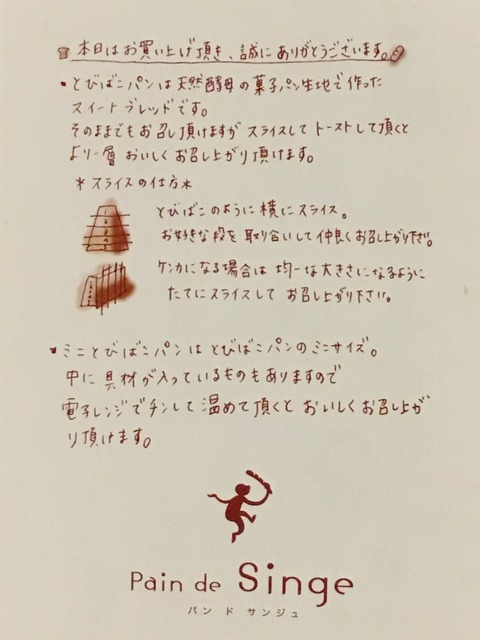 本日はお買い上げ頂き、誠にありがとうございます。
・とびばこパンは天然酵母の菓子パン生地で作った
スイートブレッドです。
そのままでもお召し頂けますがスライスしてトーストして頂くと
より一層おいしくお召し上がり頂けます。
*スライスの仕方*
とびばこのように横にスライス。
お好きな段を取り合いして仲良くお召し上がり下さい。
ケンカになる場合は均一な大きさになるように
たてにスライスしてお召し上がり下さい。
・ミニとびばこパンはとびばこパンのミニサイズ。
中に具材が入っているものもありますので
電子レンジでチンして温めて頂くとおいしくお召し上が
り頂けます。
Pain de Singe
パン ド サンジュ